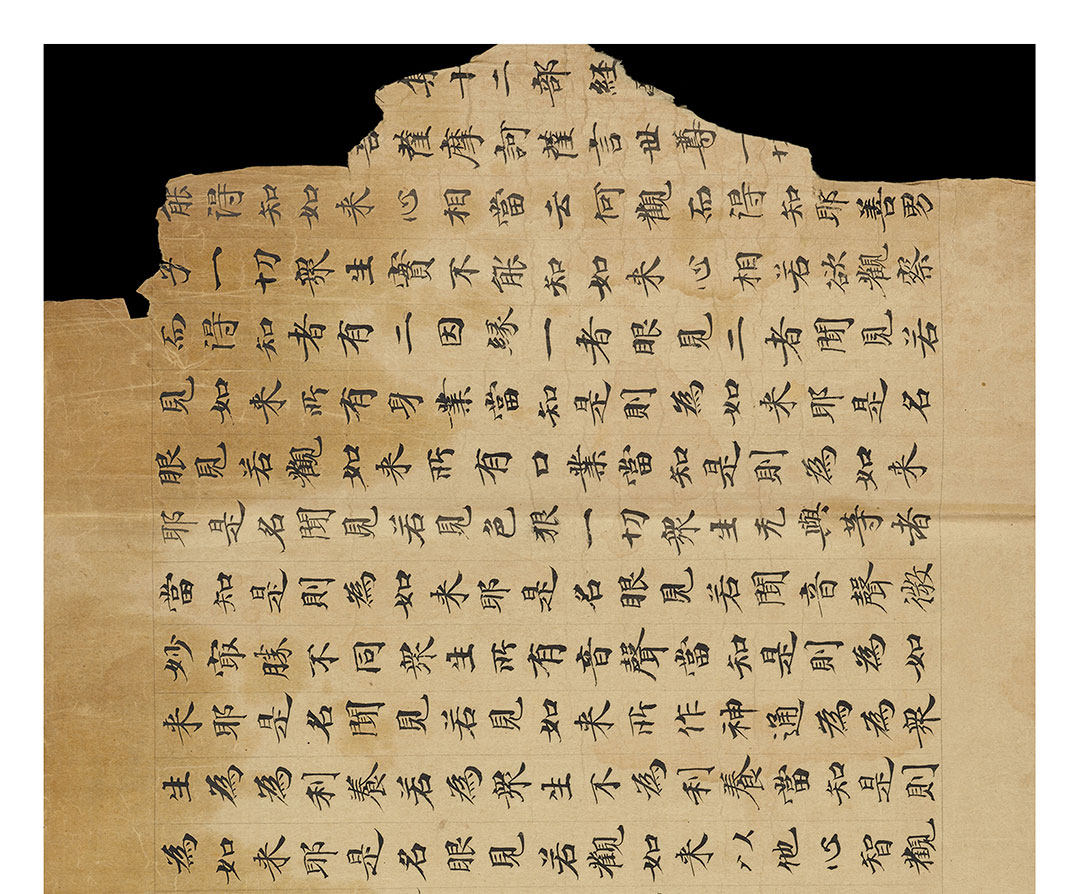 集十二部經
菩薩摩訶薩言世尊一
能得知如来心相當云何觀而得知耶善男
子一切衆生實不能知如来心相若欲觀察
而得知者有二因緣一者眼見二者聞見若
見如来所有身業當知是則為如来耶是名
眼見若觀如来所有口業當知是則為如来
耶是名聞見若見色貌一切衆生无與等者
當知是則為如来耶是名眼見若聞音聲微
妙㝡勝不同衆生所有音聲當知是則為如
来耶是名聞見若見如来所作神通為為衆
生為為利養若為衆生不為利養當知是則
為如来耶是名眼見若觀如来以他心智觀